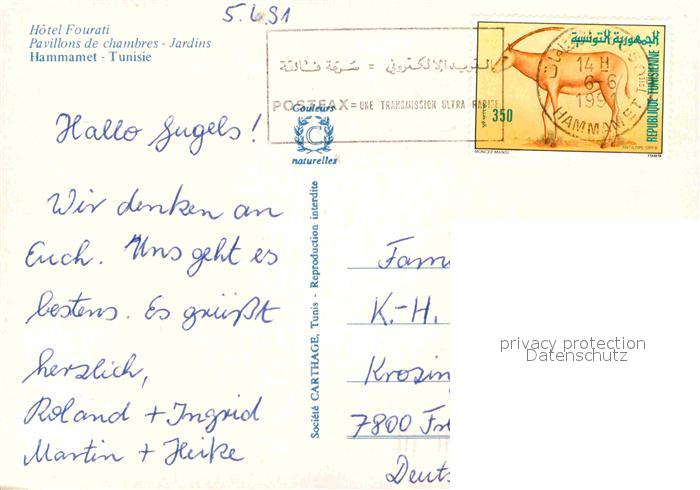 5.6.91
Hôtel Fourati
Pavillons de chambres - Jardins
Hammamet - Tunisie
البريد الإلكتروني = سرعة فائقة
POSTFAX = UNE TRANSMISSION ULTRA RAPIDE
14 H
6-6
1991
HAMMAMET
الجمهورية التونسية
REPUBLIQUE TUNISIENNE
350
MONCEF MANSI
ANTILOPE ORYX
1989
Couleurs
C
naturelles
Hallo Gugels!
Wir denken an
Euch. Uns geht es
bestens. Es grüßt
herzlich,
Roland + Ingrid
Martin + Heike
Société CARTHAGE, Tunis - Reproduction interdite
Fam
K.-H.
Krozin
7800
Deuts
privacy protection
Datenschutz